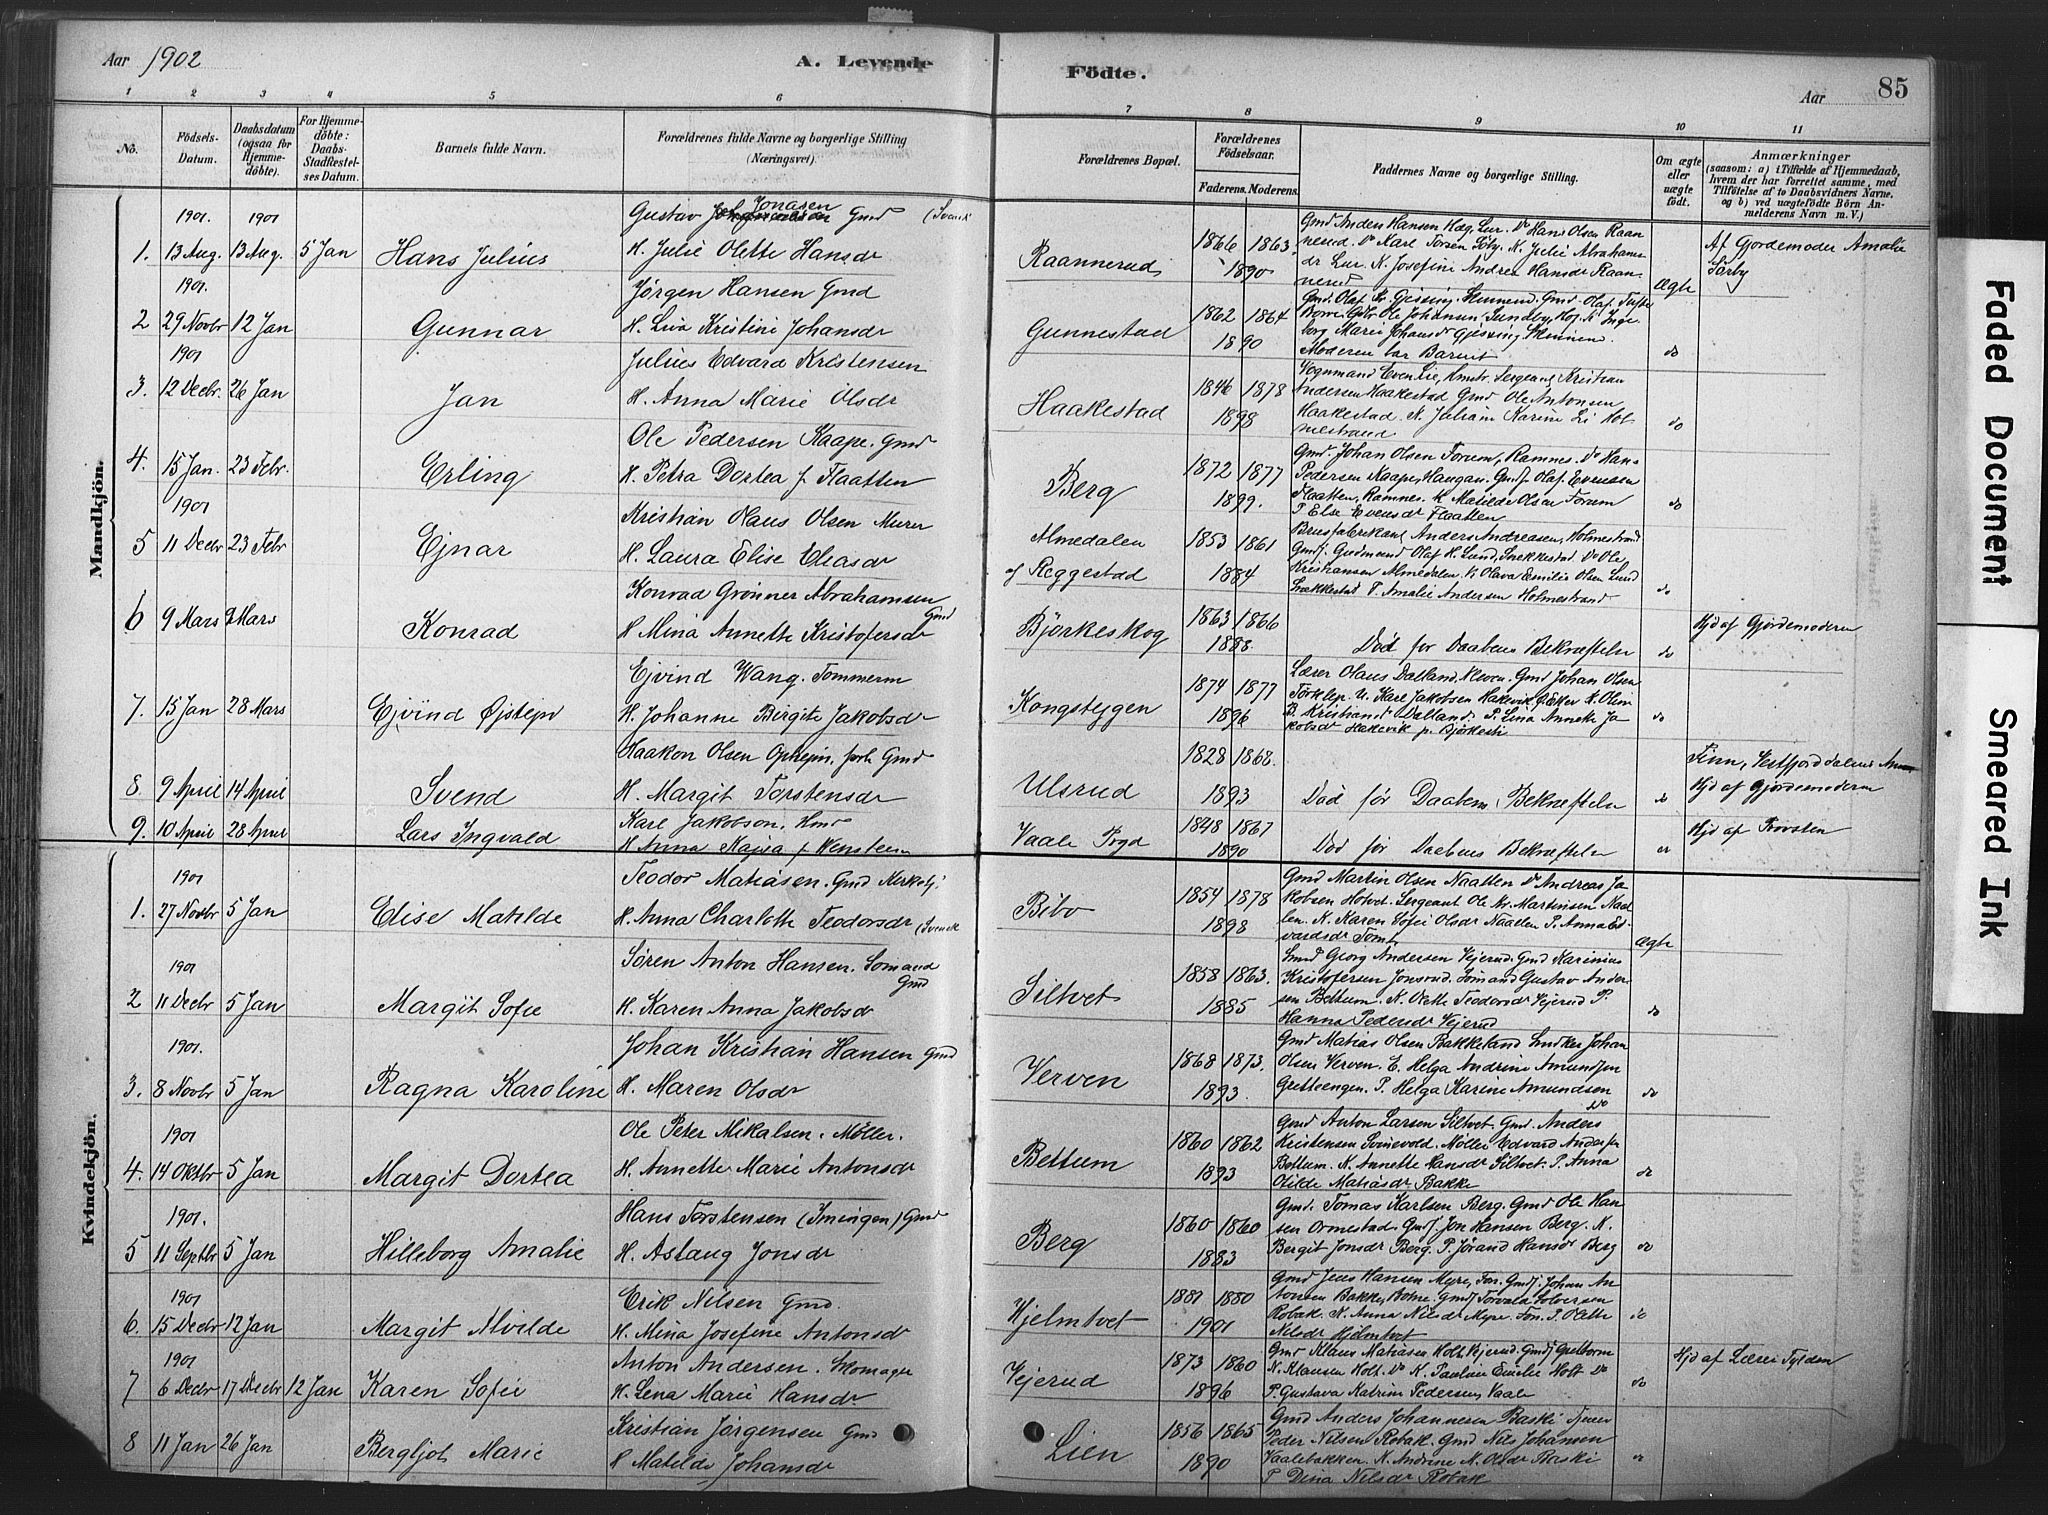 Aar 1902
A. Levende
Födte.
Aar
85
1 2 3 4 5 6 7 8 9 10 11
No.
Födsels-Datum.
Daabsdatum (ogsaa for Hjemmedöbte).
For Hjemmedöbte: Daabs-Stadfæstelses Datum.
Barnets fulde Navn.
Forældrenes fulde Navne og borgerlige Stilling (Næringsvei).
Forældrenes Bopæl.
Forældrenes Födselsaar.
Faderens. Moderens.
Faddernes Navne og borgerlige Stilling.
Om ægte eller uægte födt.
Anmærkninger
(saasom: a) i Tilfælde af Hjemmedaab, hvem der har forrettet samme, med Tilföielse af to Daabsvidners Navne, og b) ved uægtefödte Börn Anmelderens Navn m. V.)
Mandkjön.
1. 1901 13 Aug. 1901 13 Aug. 5 Jan Hans Julius Gustav Jonasen Gmd (Svensk
H. Julie Olette Hansdr Raannerud 1866 1863. 1890
Gmd Anders Hansen Hdg. Lur. Do Hans Olsen Raan
nerud. Do Karl Torsen Föby. K. Julie Abrahams
dr Lur. K. Josefine Andrea Hansdr Raan
nerud Ægte Af Gjordemoder Amalie Sörby
2 1901. 29 Novbr 12 Jan Gunnar Jörgen Hansen Gmd
H. Lina Kristine Johansdr Gunnestad 1862 1864 1890
borg Marie Johansdr Gjessing Skinnem.
Moderen bar Barnet do
3. 1901 12 Decbr. 26 Jan Jan Julius Edvard Kristensen
H. Anna Marie Olsdr Haakestad 1846 1878 1898
Vognmand Even Lie, Hmstr. Sergeant Kristian
Andersen Haakestad Gmd Ole Antonsen
Haakestad. K. Juliane Karine Li Hol
mestrand do
4. 15 Jan. 23 Febr. Erling Ole Pedersen Kaape. Gmd
H. Petra Dortea f Flaatten Berg 1872 1877 1899.
Gmd. Johan Olsen Forum, Ramnes. Do Hans
Pedersen Kaape, Haugan. Gmdf Olaf Evensen
Flaatten, Ramnes. K Matilde Olsen Forum
P Else Evensdr Flaatten do
5 1901 11 Decbr 23 Febr Ejnar Kristian Olaus Olsen Murer
H. Laura Elise Eleasdr Almedalen af Reggestad 1853 1861 1884
Brusfabrikant Anders Andreasen, Holmestrand
Gmdf. Gudmund Olaf H. Lund, Snekkestad Do Ole
Kristiansen Almedalen. K Olava Emilie Olsen Lund
Snekkestad P. Amalie Andersen Holmestrand do
6 9 Mars 9 Mars Konrad Konrad Grönner Abrahamsen Gmd
H Mina Annette Kristofersdr Björkeskog 1863 1866 1888.
Död før Daabens Bekræftelse do Hjd af Gjordemoderen
7. 15 Jan 28 Mars Ejvind Øjstejn Ejvind Wang. Tømmerm
H. Johanne Birgite Jakobsdr Kongstyggen 1874 1877 1896
Lærer Olaus Dalland, Kleven. Gmd Johan Olsen
Törklep. U. Karl Jakobsen Hakevik, Ø Eker K. Olin
B. Kristiansdr Dalland. P. Lina Annette Ja
kobsdr Hakevik p. Bjørkesti do
8. 9 April 14 April Svend Haakon Olsen Ophejm, forh Gmd
H. Margit Torstensdr Ulsrud 1828 1868. 1893
Död før Daabens Bekræftelse do Tinn, Vestfjorddalens
Hjd af Gjordemoderen
9. 10 April 28 April Lars Ingvald Karl Jakobson, Hmd
H Anna Kajsa f Wensteen Vaale Prgd 1848 1867 1890
Död før Daabens Bekræftelse Hjd af Provsten
Kvindekjön.
1. 1901 27 Novbr 5 Jan Elise Matilde Teodor Matiasen. Gmd Kirkebj
H. Anna Charlotte Teodorsdr (Svensk Bibo 1854 1878 1898
Gmd Martin Olsen Naatten Do Andreas Ja
kobsen Hotvet. Sergeant Ole M. Martinsen Naat
ten. K. Karen Sofie Olsdr Naatten P. Anna Ed
vardsdr Tomt Ægte
2 1901 11 Decbr 5 Jan Margit Sofie Sören Anton Hansen. Sömand Gmd
H. Karen Anna Jakobsdr Siltvet 1858 1863. 1885
Gmd Georg Andersen Vejerud. Gmd Karinius
Kristofersen Jonsrud. Sömand Gustav Ander
sen Bettum. K. Olette Teodorsdr Vejerud P.
Hanna Pedersdr Vejerud do
3. 1901. 8 Novbr 5 Jan Ragna Karoline Johan Kristian Hansen Gmd
H. Maren Olsdr Verven 1868 1873. 1893.
Gmd Matias Olsen Bakkeland Snedker Johan
Olsen Verven. E. Helga Andrine Amundsen
Gretteengen. P. Helga Karine Amundsen do do
4. 1901 14 Oktbr 5 Jan Margit Dortea Ole Peter Mikalsen. Møller.
H. Annette Marie Antonsdr Bettum 1860 1862 1893
Gmd Anton Larsen Siltvet Gmd. Anders
Kristensen Svinevold. Møller Edvard Andersen
Bettum. K. Annette Hansdr Siltvet. P. Anna
Otilde Matiasdr Bakke do
5 1901. 11 Septbr 5 Jan Hilleborg Amalie Hans Torstensen (Imingen) Gmd
H. Aslaug Jonsdr Berg 1860 1860 1883
Gmd. Tomas Karlsen Berg. Gmd Ole Han
sen Ormestad. Gmdf. Jon Hansen Berg. K.
Bergit Jonsdr Berg. P. Jörand Hansdr Berg do
6. 1901 15 Decbr 12 Jan Margit Alvilde Erik Nilsen Gmd.
H. Mina Josefine Antonsdr Hjelmtvet 1881 1880 1901
Gmd Jens Hansen Myre, Fon. Gmdf. Johan An
tonsen Bakke, Botne. Gmdf Torvald Solversen
Robak. K. Anna Nilsdr Myre Fon. P. Olette
Nilsdr Hjelmtvet do
7 1901 6 Decbr 17 Decbr 12 Jan Karen Sofie Anton Andersen. Skomager
H. Lena Marie Hansdr Vejerud 1873 1860 1896
Gmd Klaus Matiasen Holt. Vejerud. Gmdf
N. Klausen Holt. Do K. Pauline Emelie Holt Do
P. Gustava Katrine Pedersen, Vaale do Hjd af Lærer Tylden
8 11 Jan 26 Jan Bergljot Marie Kristian Jörgensen Gmd
H Matilde Johansdr Lien 1856 1865 1890
Gmd Anders Johannesen Baski
Peder Nilsen Robak. Gmd Nils Johansen
Vaalebakken. K. Andrine N. Olsdr Baski
P Dina Nilsdr Robak do
Faded Document
Smeared Ink